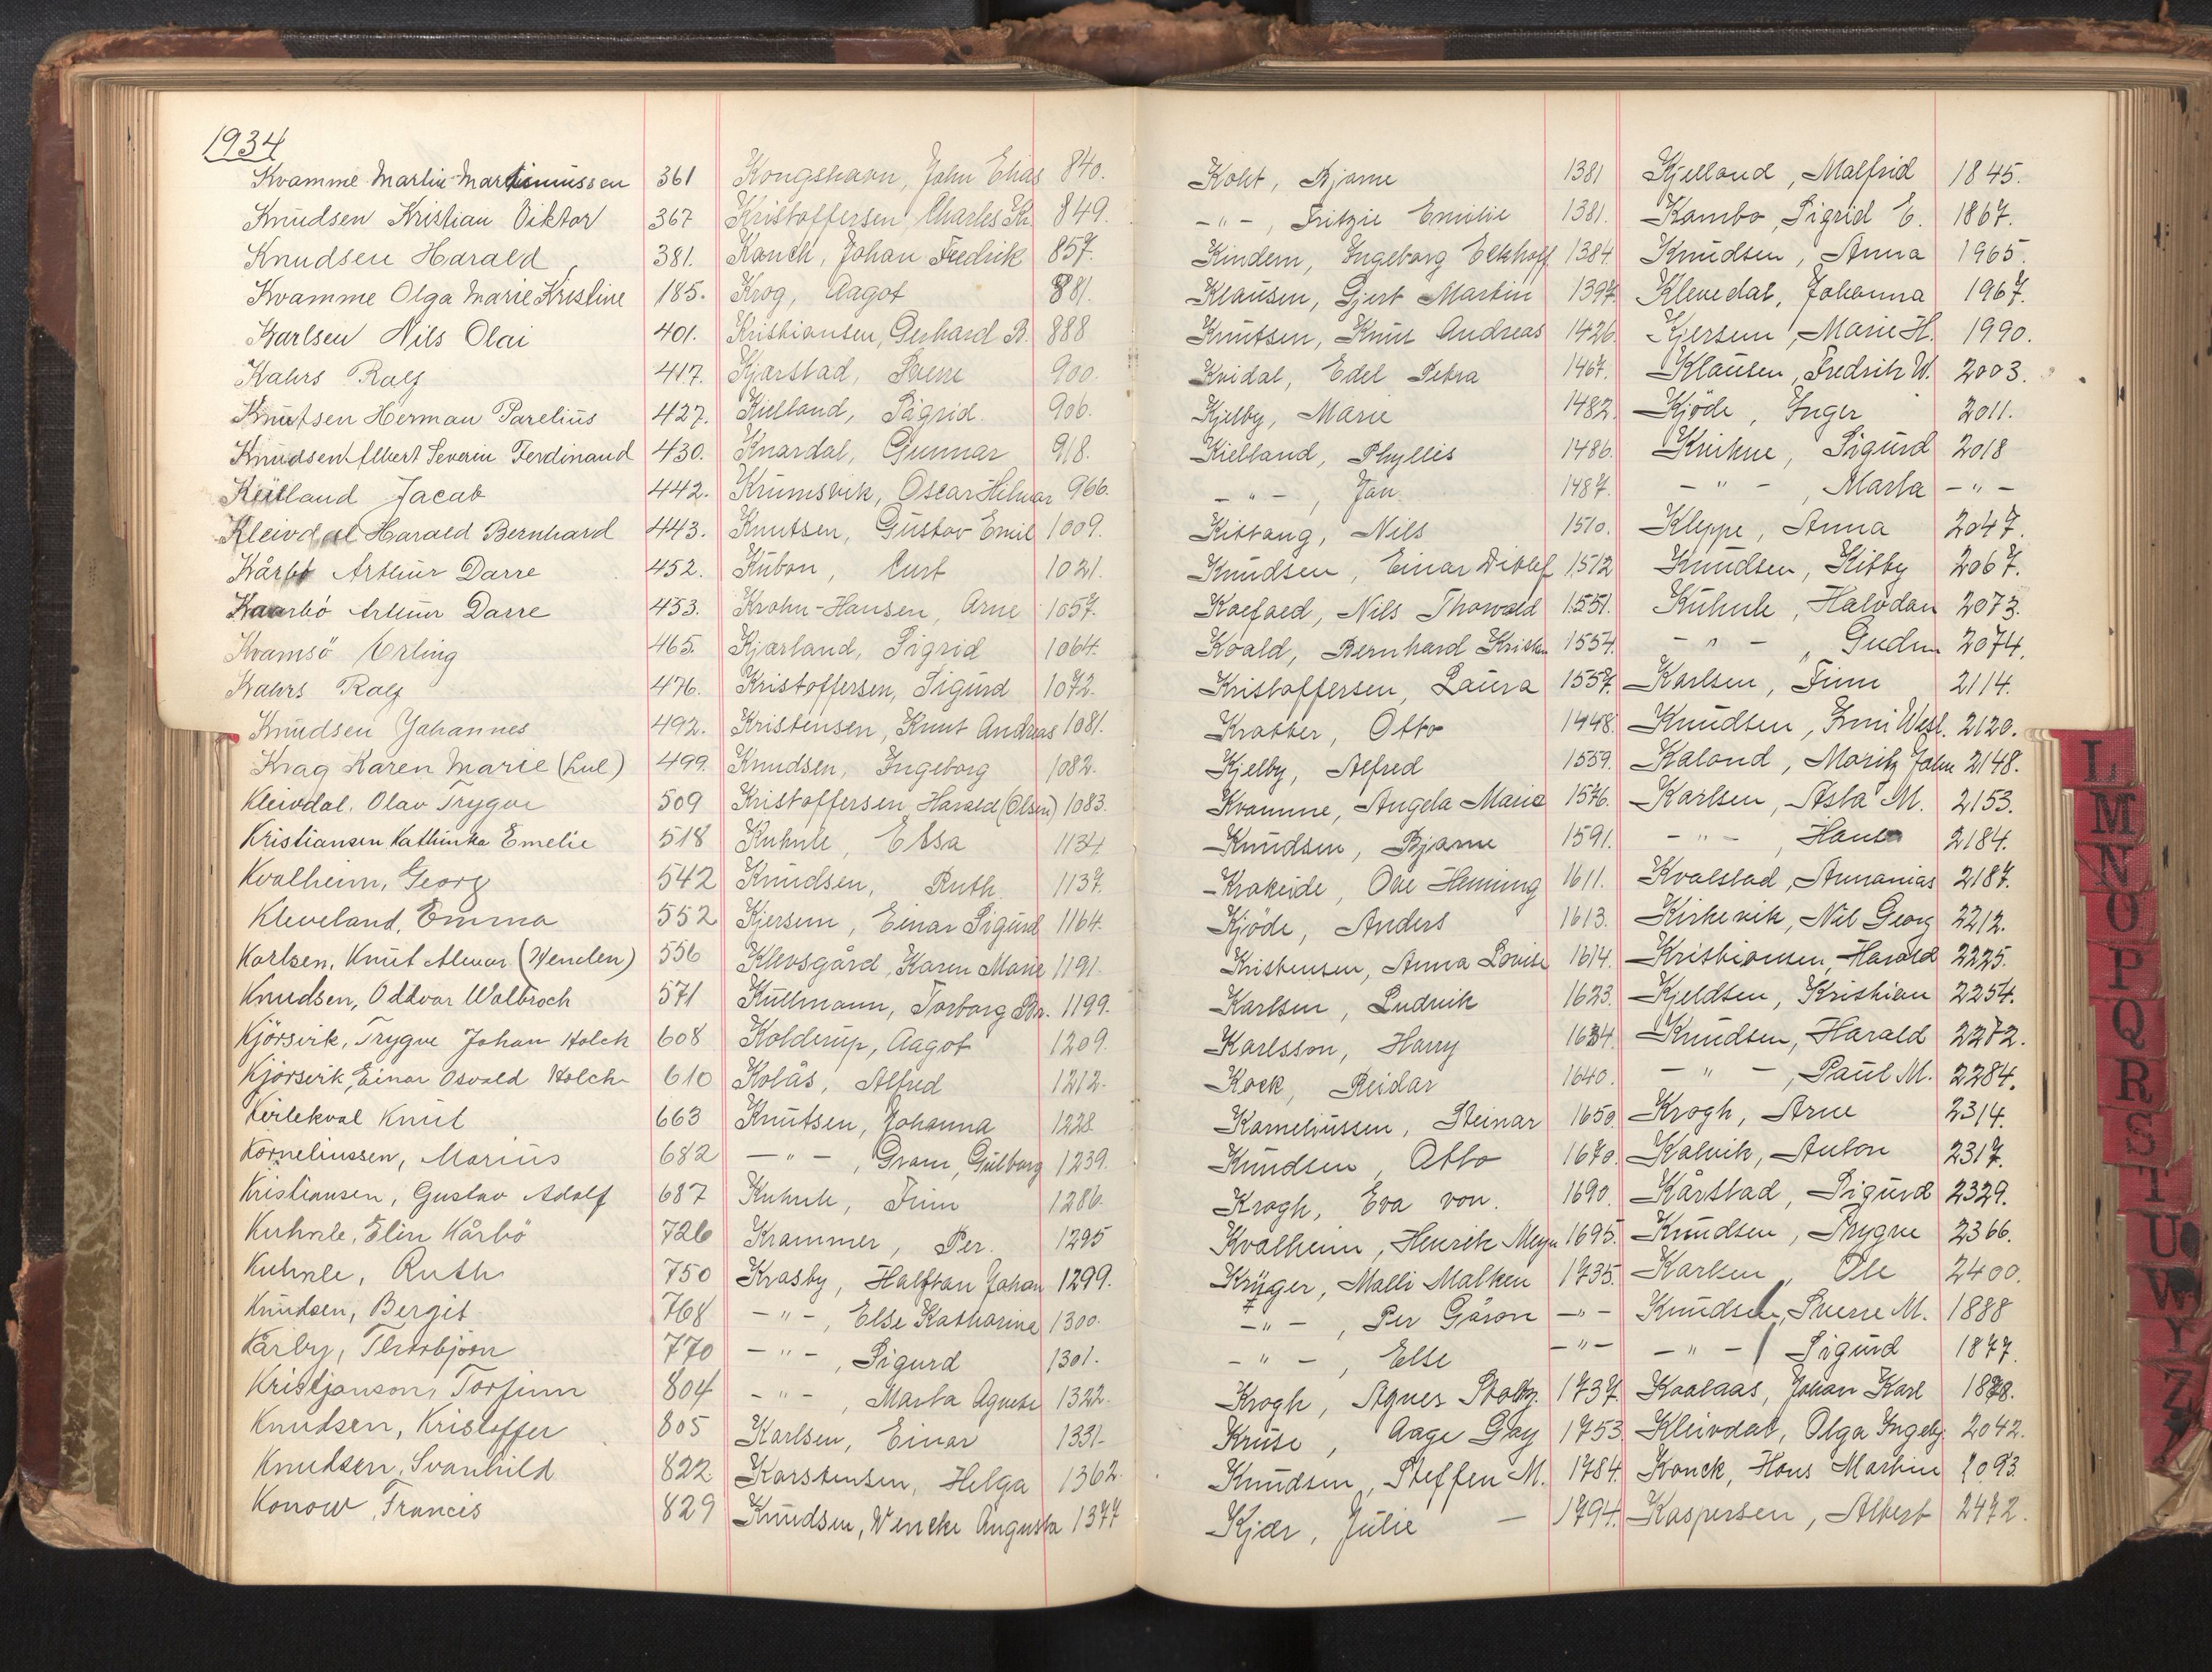 1934
Kvamme Martin Martinussen 361
Knudsen Kristian Viktor 367
Knudsen Harald 381.
Kvamme Olga Marie Kristine 185.
Karlsen Nils Olai 401.
Kahrs Ralf 417.
Knutsen Herman Parelius 427.
Knudsen Albert Severin Ferdinand 430.
Kvitland Jacob 442.
Kleivdal Harald Bernhard 443.
Kårbö Arthur Darre 452.
Kaarbö Arthur Darre 453.
Kvamsö Erling 465.
Kahrs Ralf 476.
Knudsen Johannes 492.
Krag Karen Marie 499.
Kleivdal, Olav Trygve 509
Kristiansen Kathinka Emelie 518
Kvalheim, Georg 542
Kleveland, Emma 552
Karlsen, Knut Alvar 556
Knudsen, Oddvar Walbroch 571
Kjörsvik, Trygve Johan Holck 608
Kjörsvik, Einar Osvald Holck 610
Kvilekval Knut 663
Korneliussen, Marius 682
Kristiansen, Gustav Adolf 687
Kuhnle, Elin Kårbö 726
Kuhnle, Ruth 750
Knudsen, Bergit 768
Kårby, Thorbjörn 770
Kristjanson, Torfinn 804
Knudsen, Kristoffer 805
Knudsen, Svanhild 822
Konow, Francis 829
Kongshavn, John Elias 840.
Kristoffersen, Charles Kr. 849.
Kanck, Johan Fredrik 857.
Krog, Aagot 881.
Kristiansen, Gerhard B. 888
Kjarstad, Sverre 900.
Kielland, Sigrid. 906.
Knardal, Gunnar 918.
Krumsvik, Oscar Helmar 966.
Knutsen, Gustav Emil 1009.
Kubon, Curt 1021.
Krohn-Hansen, Arne 1057.
Kjarland, Sigrid 1064.
Kristoffersen, Sigurd 1072.
Kristensen, Knut Andreas 1081.
Knudsen, Ingeborg 1082.
Kristoffersen Harald (Olsen) 1083.
Kuhnle, Elsa 1134.
Knudsen, Ruth 1137.
Kjersem, Einar Sigurd 1164.
Klevsgård, Karen Marie 1191.
Kullmann, Torborg Br. 1199.
Kolderup, Aagot 1209.
Kolås, Alfred 1212.
Knutsen, Johanna 1228
— " — , Gram, Gulborg 1239.
Kuhnle, Finn 1286.
Krammer, Per. 1295
Krasby, Halfdan Johan 1299.
- " - , Else Katharina 1300.
- " - , Sigurd 1301.
- " - , Marta Agnete 1322.
Karlsen, Einar 1331.
Karstensen, Helga 1362.
Knudsen, Wencke Augusta 1377
Koht, Bjarne 1381
- " - , Fritzie Emilie 1381.
Kindem, Ingeborg Eckhoff 1384.
Klausen, Gjert Martin 1397.
Knutsen, Knut Andreas 1426.
Kvidal, Edel Petra 1467.
Kjelby, Marie 1482.
Kielland, Phyllis 1486.
- " - , Jan 1487.
Kittang, Nils 1510.
Knudsen, Einar Ditlef 1512
Koefoed, Nils Thorvald 1551.
Kvald, Bernhard Kristen 1554.
Kristoffersen, Laura 1557.
Kratter, Otto 1448.
Kjelby, Alfred 1559.
Kvamme, Angela Marie 1576.
Knudsen, Bjarne 1591.
Krakeide, Ove Henning 1611.
Kjöde, Anders 1613.
Kristensen, Anna Lovise 1614.
Karlsen, Ludvik 1623.
Karlsson, Harry 1634.
Kock, Reidar 1640.
Korneliussen, Steinar 1650.
Knudsen, Otto 1670.
Krogh, Eva von. 1690.
Kvalheim, Henrik Meyer 1695.
Krüger, Malli Malken 1735.
- " - , Per Göron - " -
- " - , Else - " -
Krogh, Agnes Stoltz. 1737.
Kruse, Aage Gay 1753
Knudsen, Steffen M. 1784.
Kjær, Julie — 1794.
Kjelland, Malfrid 1845.
Kambo, Sigrid E. 1867.
Knudsen, Anna 1965.
Klevedal, Johanna 1967.
Kjersem, Marie H. 1990.
Klausen, Fredrik W. 2003.
Kjöde, Inger 2011.
Knihne, Sigurd 2018
- " - , Marta - " -
Kleppe, Anna 2047.
Knudsen, Kitty 2067.
Kuhnle, Halvdan 2073.
- " - , Gudrun 2074.
Karlsen, Finn 2114.
Knudsen, Immi Wesl. 2120.
Kaland, Moritz John 2148.
Karlsen, Asta M. 2153.
- " - , Hans 2184.
Kvalstad, Annanias 2187.
Kirkevik, Nil Georg 2212.
Kristiansen, Harald 2225.
Kjeldsen, Kristian 2254.
Knudsen, Harald 2272.
- " - , Paul M. 2284.
Krogh, Arne 2314.
Kalvik, Anton 2317.
Kårstad, Sigurd 2329.
Knudsen, Trygve 2366.
Karlsen, Ole 2400.
Knudsen, Sverre M. 1888
- " - Sigurd 1877.
Kaalaas, Johan Karl 1878.
Kleivdal, Olga Ingebj. 2042.
Kvanck, Hans Martin 2093.
Kaspersen, Albert 2472.
L
M
N
O
P
Q
R
S
T
U
W
Y
Z